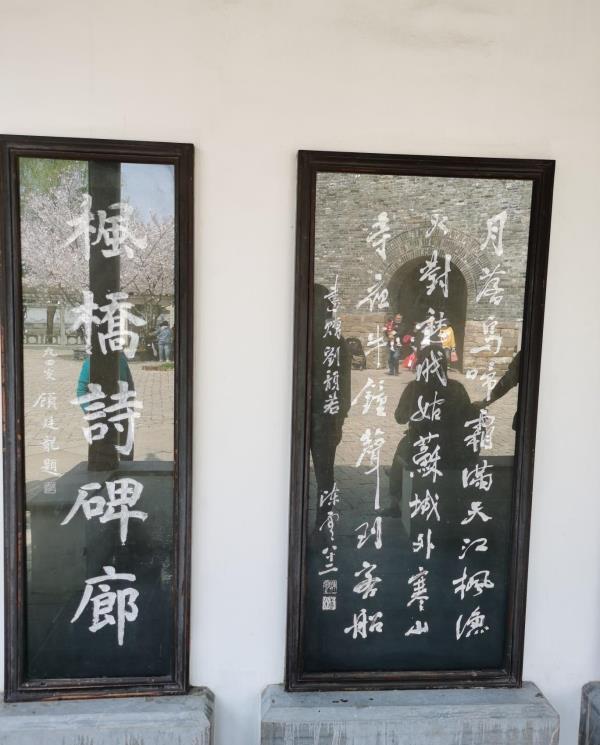 楓橋詩碑廊
九四叟 顧廷龍題
月落烏啼霜滿天江楓漁
火對愁眠姑蘇城外寒山
寺夜半鐘聲到客船
書贈劉
若
陳雲八二